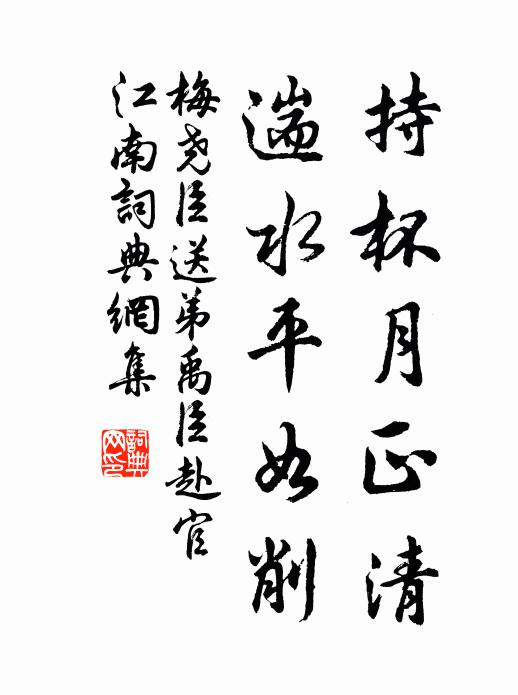 持杯月正清
湍水平如削
梅尧臣送弟禹臣赴官
江南詞典網集
詞典
网印